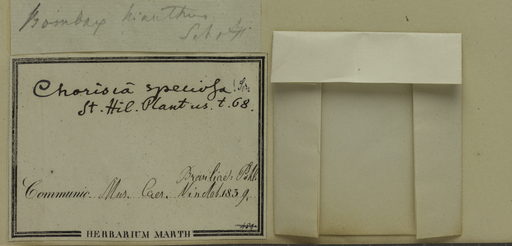 Bombax
Chorisia speciosa!
St. Hil. Plant us. t. 68.
Brasilia: Pohl.
Communic. Mus. Caes. Vindob. 1839.
HERBARIUM MARTII